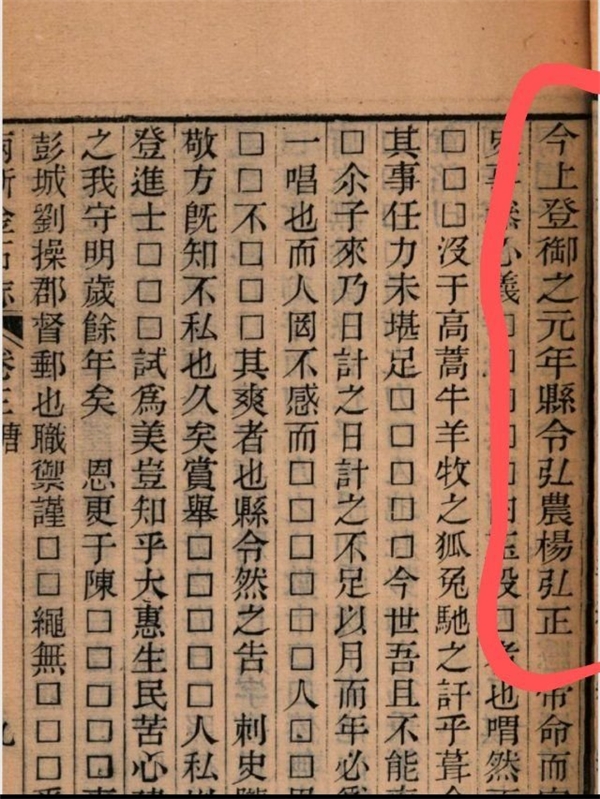 今上登御之元年縣令弘農楊弘正帝命而
必義□□□□□者也喟然
□□□沒于高蒿牛羊牧之狐兔馳之訐乎葺
其事任力未堪足□□□□今世吾且不能
□余子來乃日計之日計之不足以月而年必
一唱也而人罔不感而□□□□□人□□
□□不□□□其爽者也縣令然之告 刺史
敬方旣知不私也久矣賞舉□□□□□人私
登進士□□□試爲美豈知乎大惠生民苦心
之我守明歲餘年矣 恩更于陳□□□□
彭城劉操郡督郵也職禦謹□□繩無□□□
金石志 卷三 九